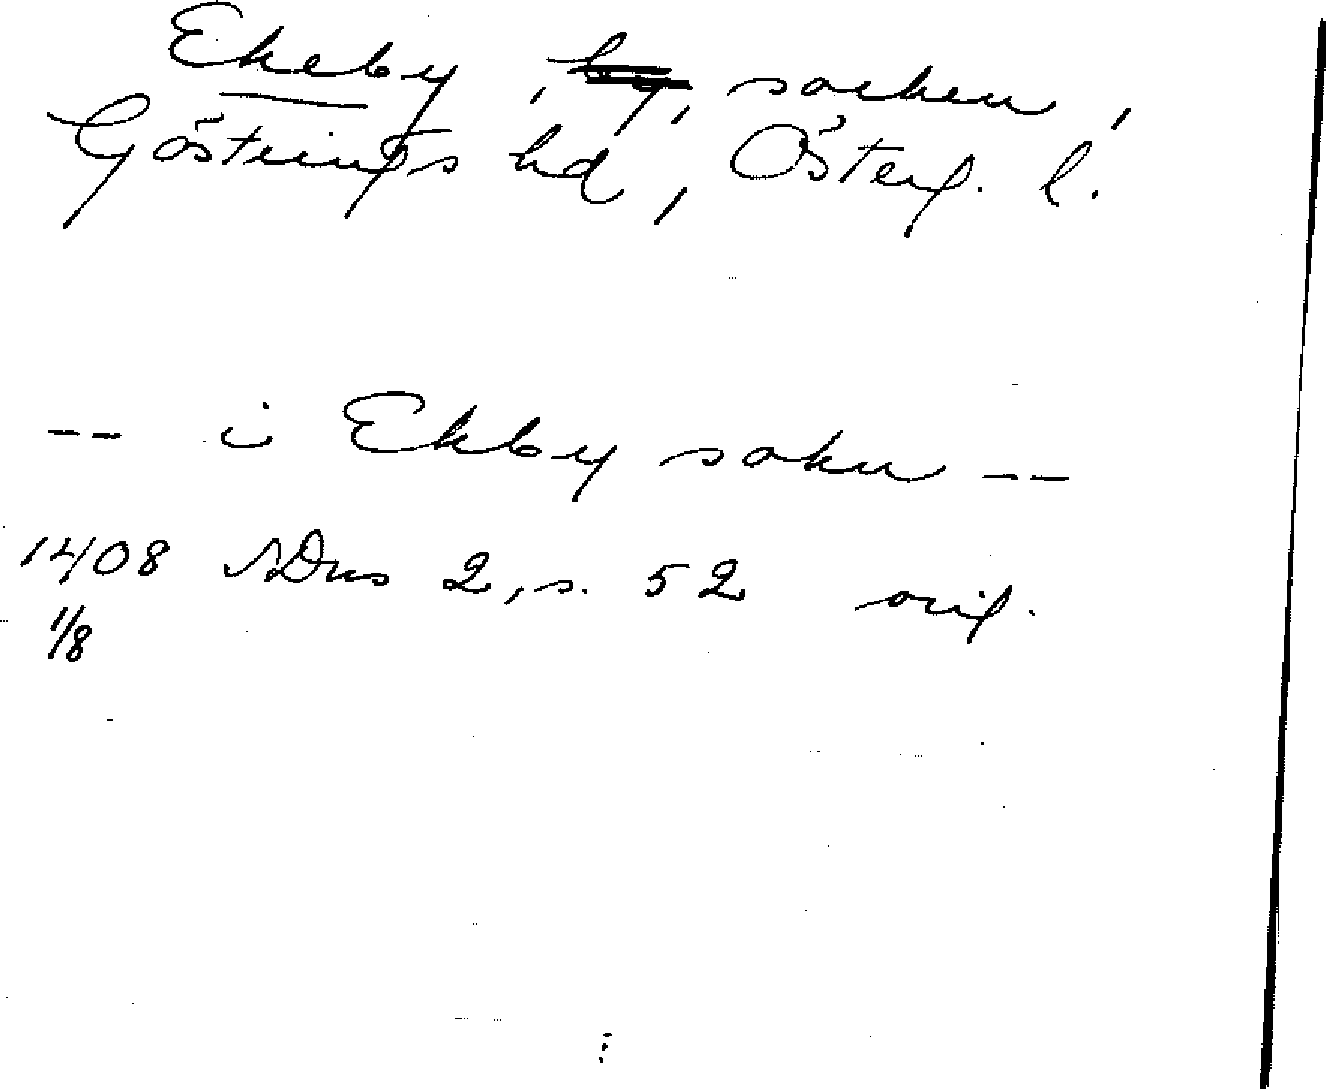 Ekeby, by, socken,
Göstrings hd, Österg. l.
-- i Ekby sokn --
1408 SDns 2, s. 52 orig.
1/8